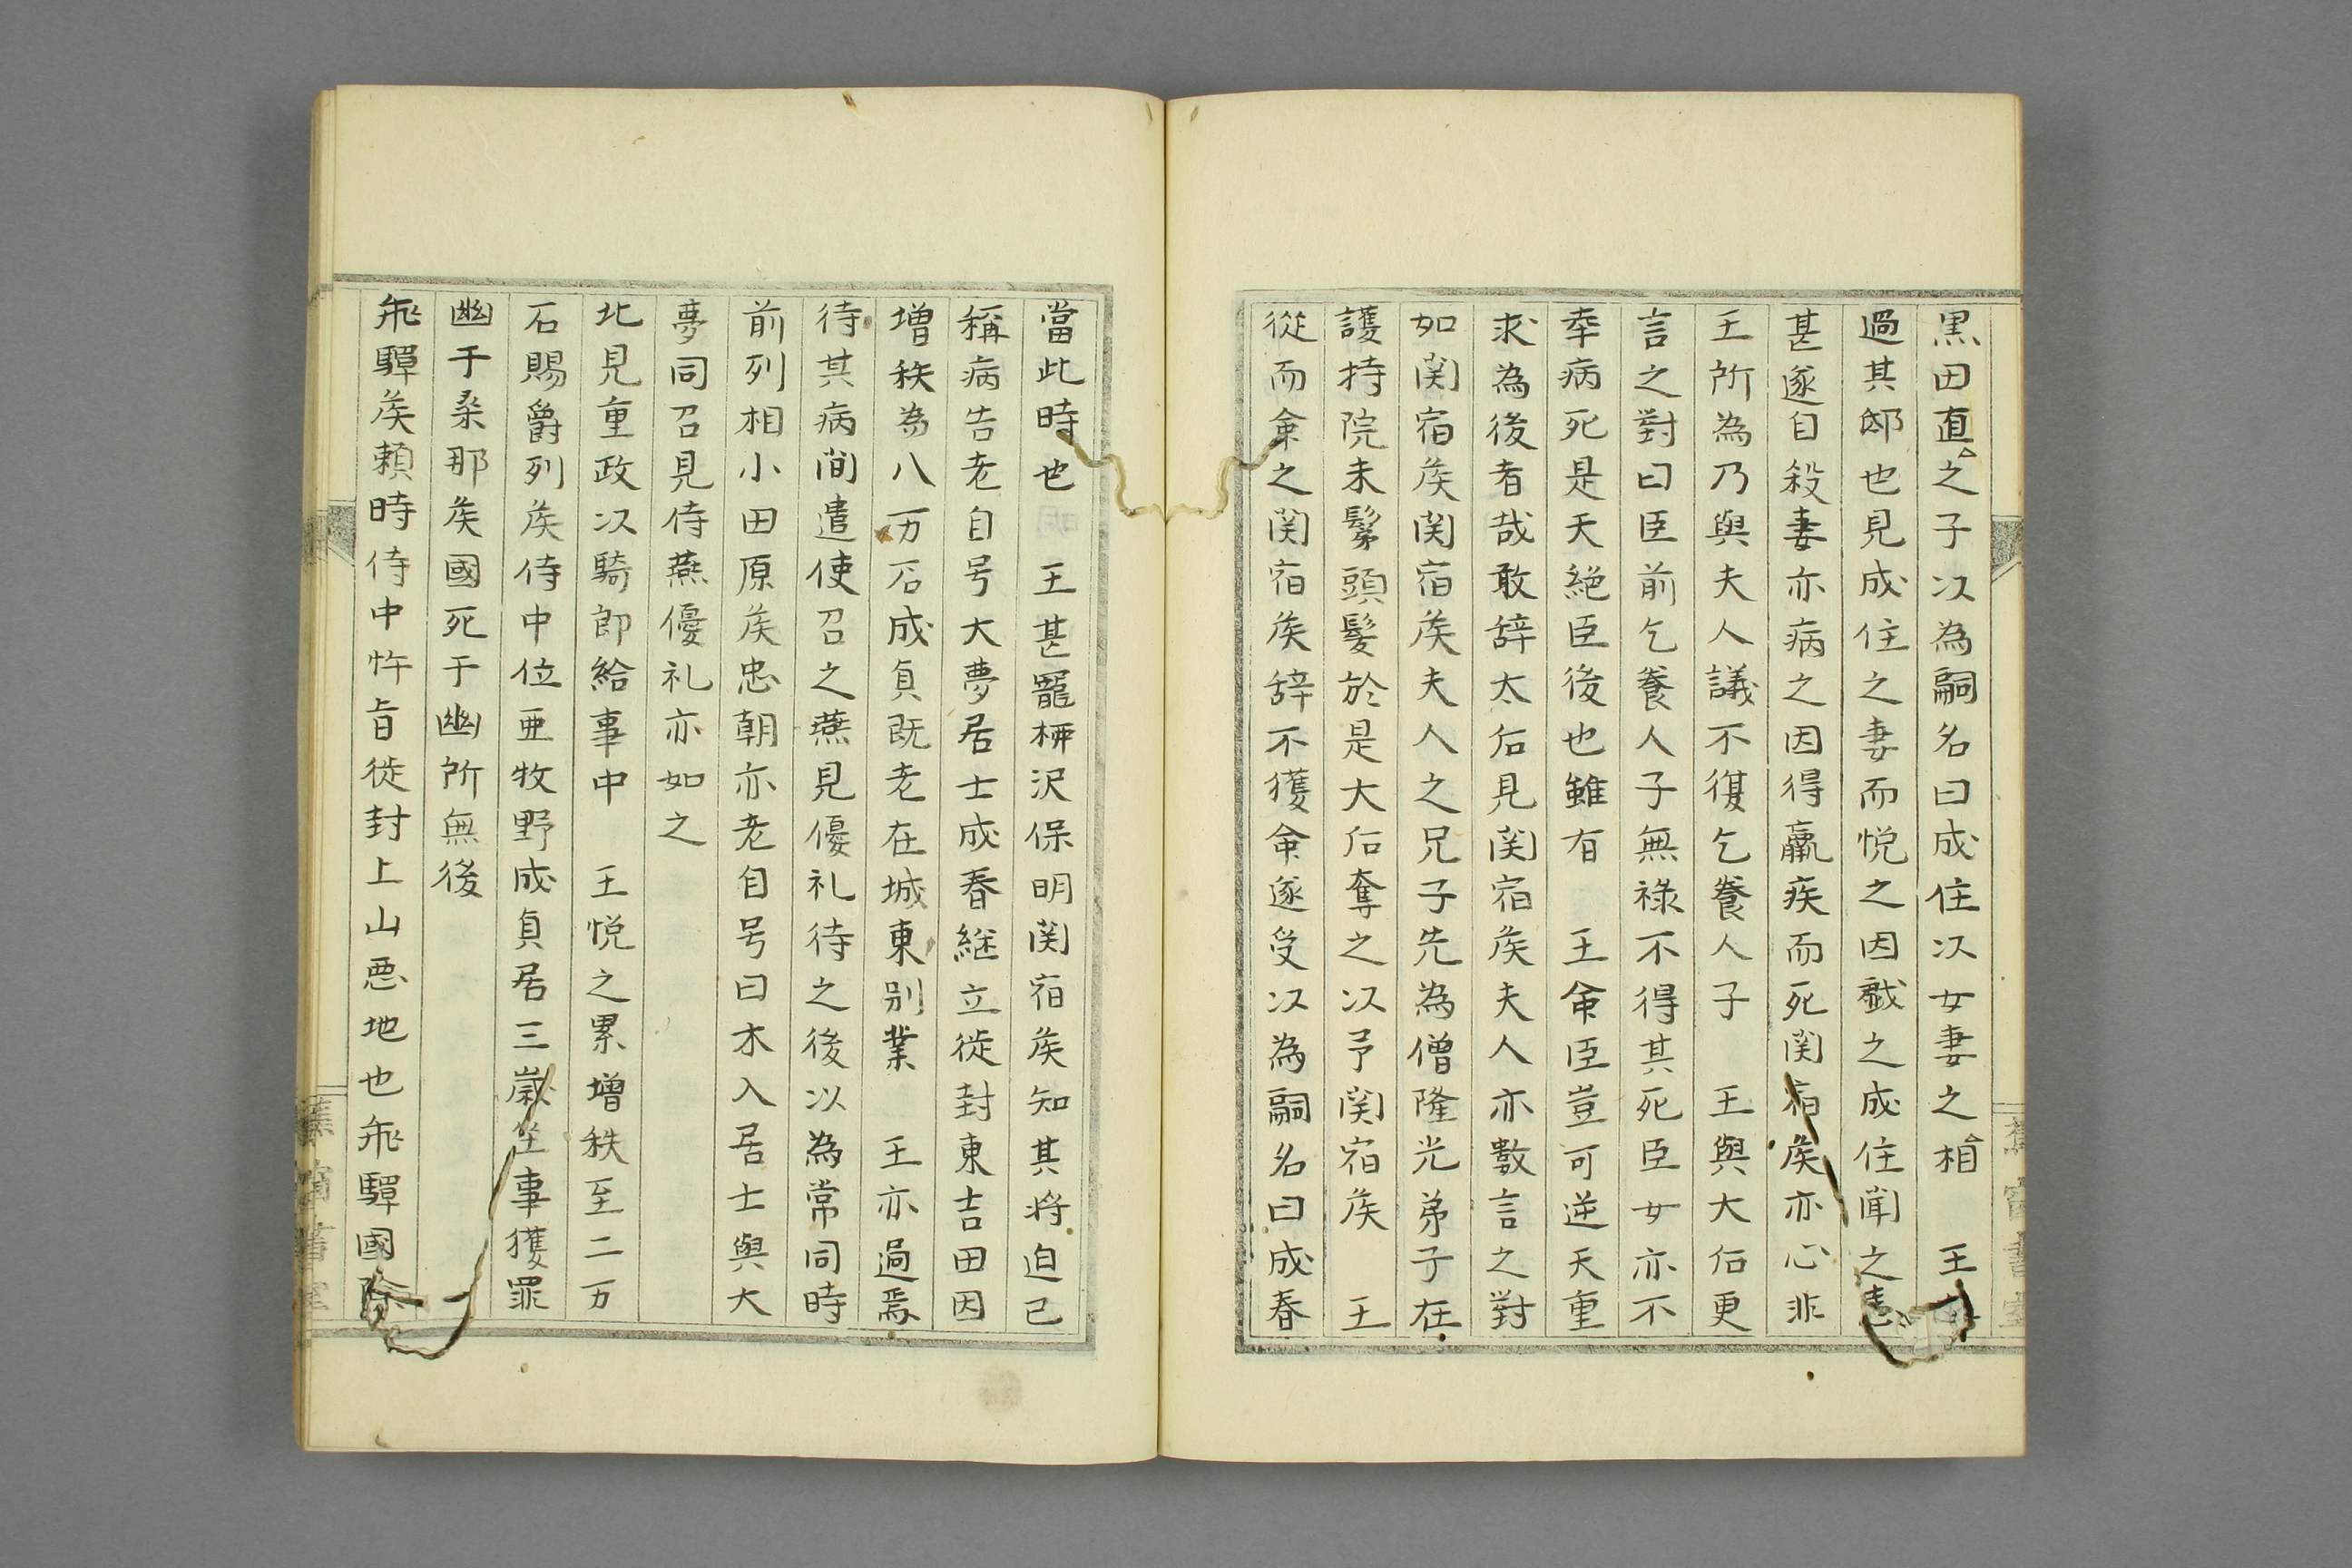 黒田直之子以為嗣名曰成住以女妻之相　王
過其邸也見成住之妻而悦之因戱之成住聞之恚
甚遂自殺妻亦病之因得羸疾而死関宿矦亦心非
王所為乃與夫人議不復乞養人子　王與大后更
言之對曰臣前乞養人子無祿不得其死臣女亦不
幸病死是天絶臣後也雖有　王命臣豈可逆天重
求為後者哉敢辞太后見関宿矦夫人亦數言之對
如関宿矦関宿矦夫人之兄子先為僧隆光弟子在
護持院未髳頭髪於是大后奪之以予関宿矦　王
從而命之関宿矦辞不獲命遂受以為嗣名曰成春
當此時也　王甚寵栁沢保明関宿矦知其将迫己
稱病告老自号大夢居士成春継立徙封東吉田因
増秩為八万石成貞既老在城東別業　王亦過焉
待其病間遣使召之燕見優礼待之後以為常同時
前列相小田原矦忠朝亦老自号曰木入居士與大
夢同召見侍燕優礼亦如之
北見重政以騎郎給事中　王悦之累増秩至二万
石賜爵列矦侍中位亜牧野成貞居三歳坐事獲罪
幽于桒那矦國死于幽所無後
飛驒矦頼時侍中忤旨徙封上山悪地也飛驒國除